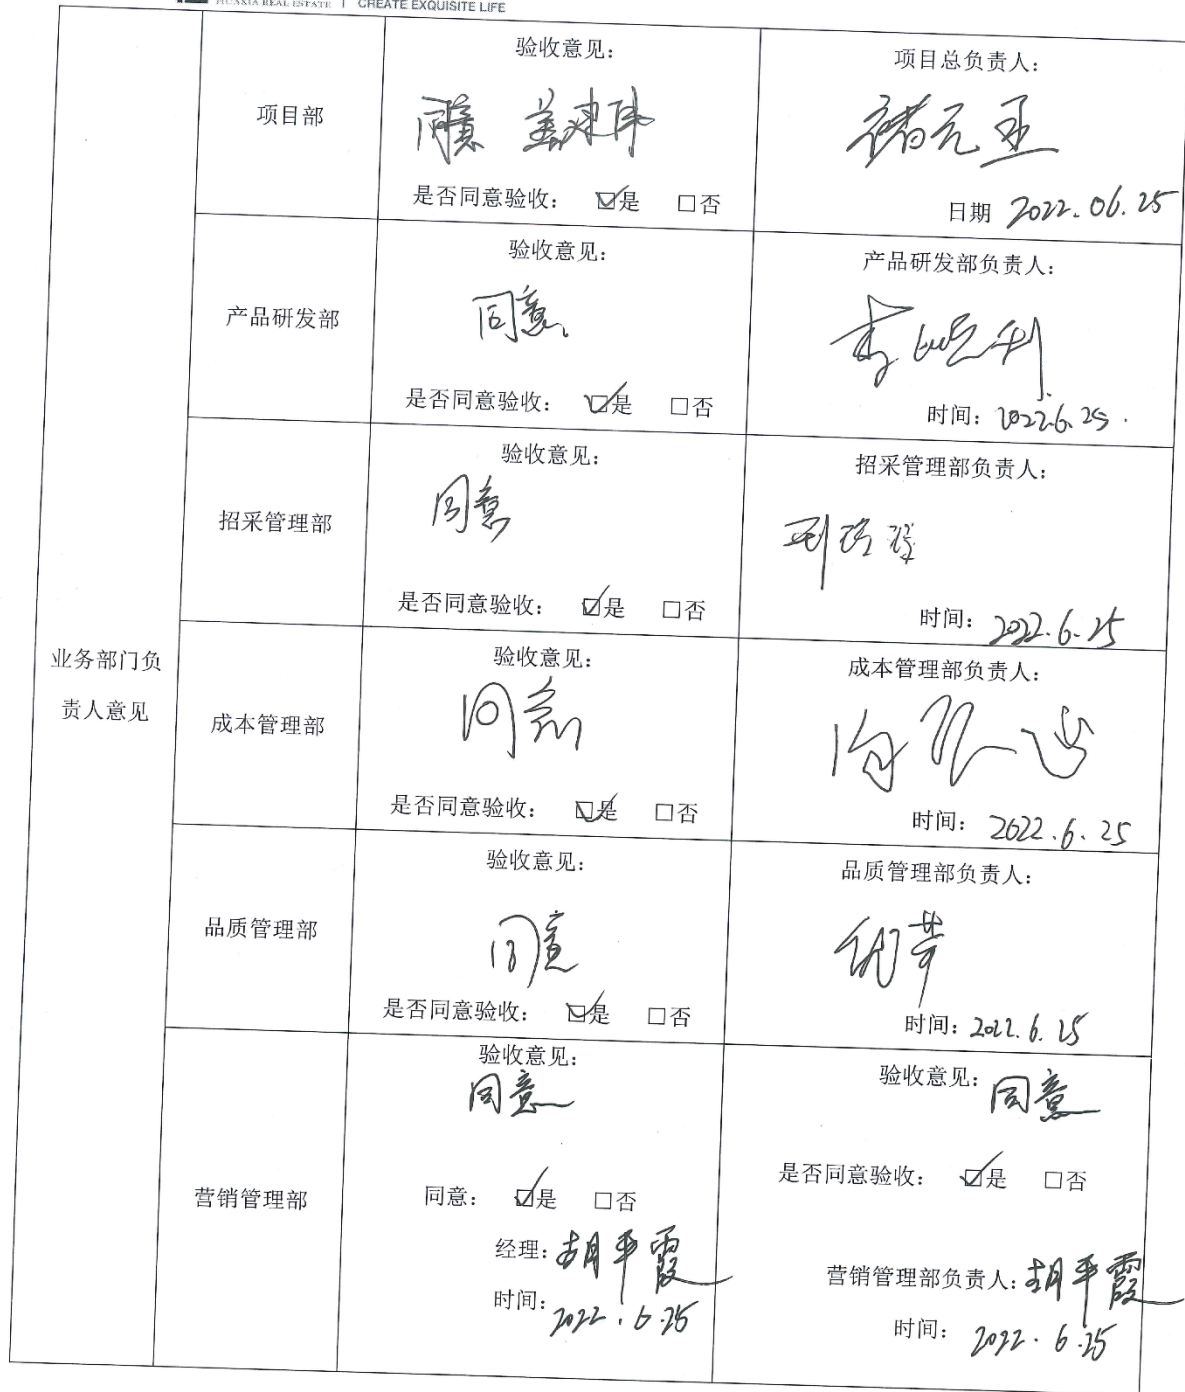 HUAXIA REAL ESTATE | CREATE EXQUISITE LIFE
业务部门负
责人意见
项目部
验收意见：
同意 姜建伟
是否同意验收： ☑是 □否
项目总负责人：
日期 2022.06.25
产品研发部
验收意见：
同意
是否同意验收： ☑是 □否
产品研发部负责人：
时间：2022.6.25.
招采管理部
验收意见：
同意
是否同意验收： ☑是 □否
招采管理部负责人：
时间：2022.6.25
成本管理部
验收意见：
同意
是否同意验收： ☑是 □否
成本管理部负责人：
时间：2022.6.25
品质管理部
验收意见：
同意
是否同意验收： ☑是 □否
品质管理部负责人：
时间：2022.6.25
营销管理部
验收意见：
同意
同意： ☑是 □否
经理：胡平霞
时间：2022.6.25
验收意见：同意
是否同意验收： ☑是 □否
营销管理部负责人：胡平霞
时间：2022.6.25